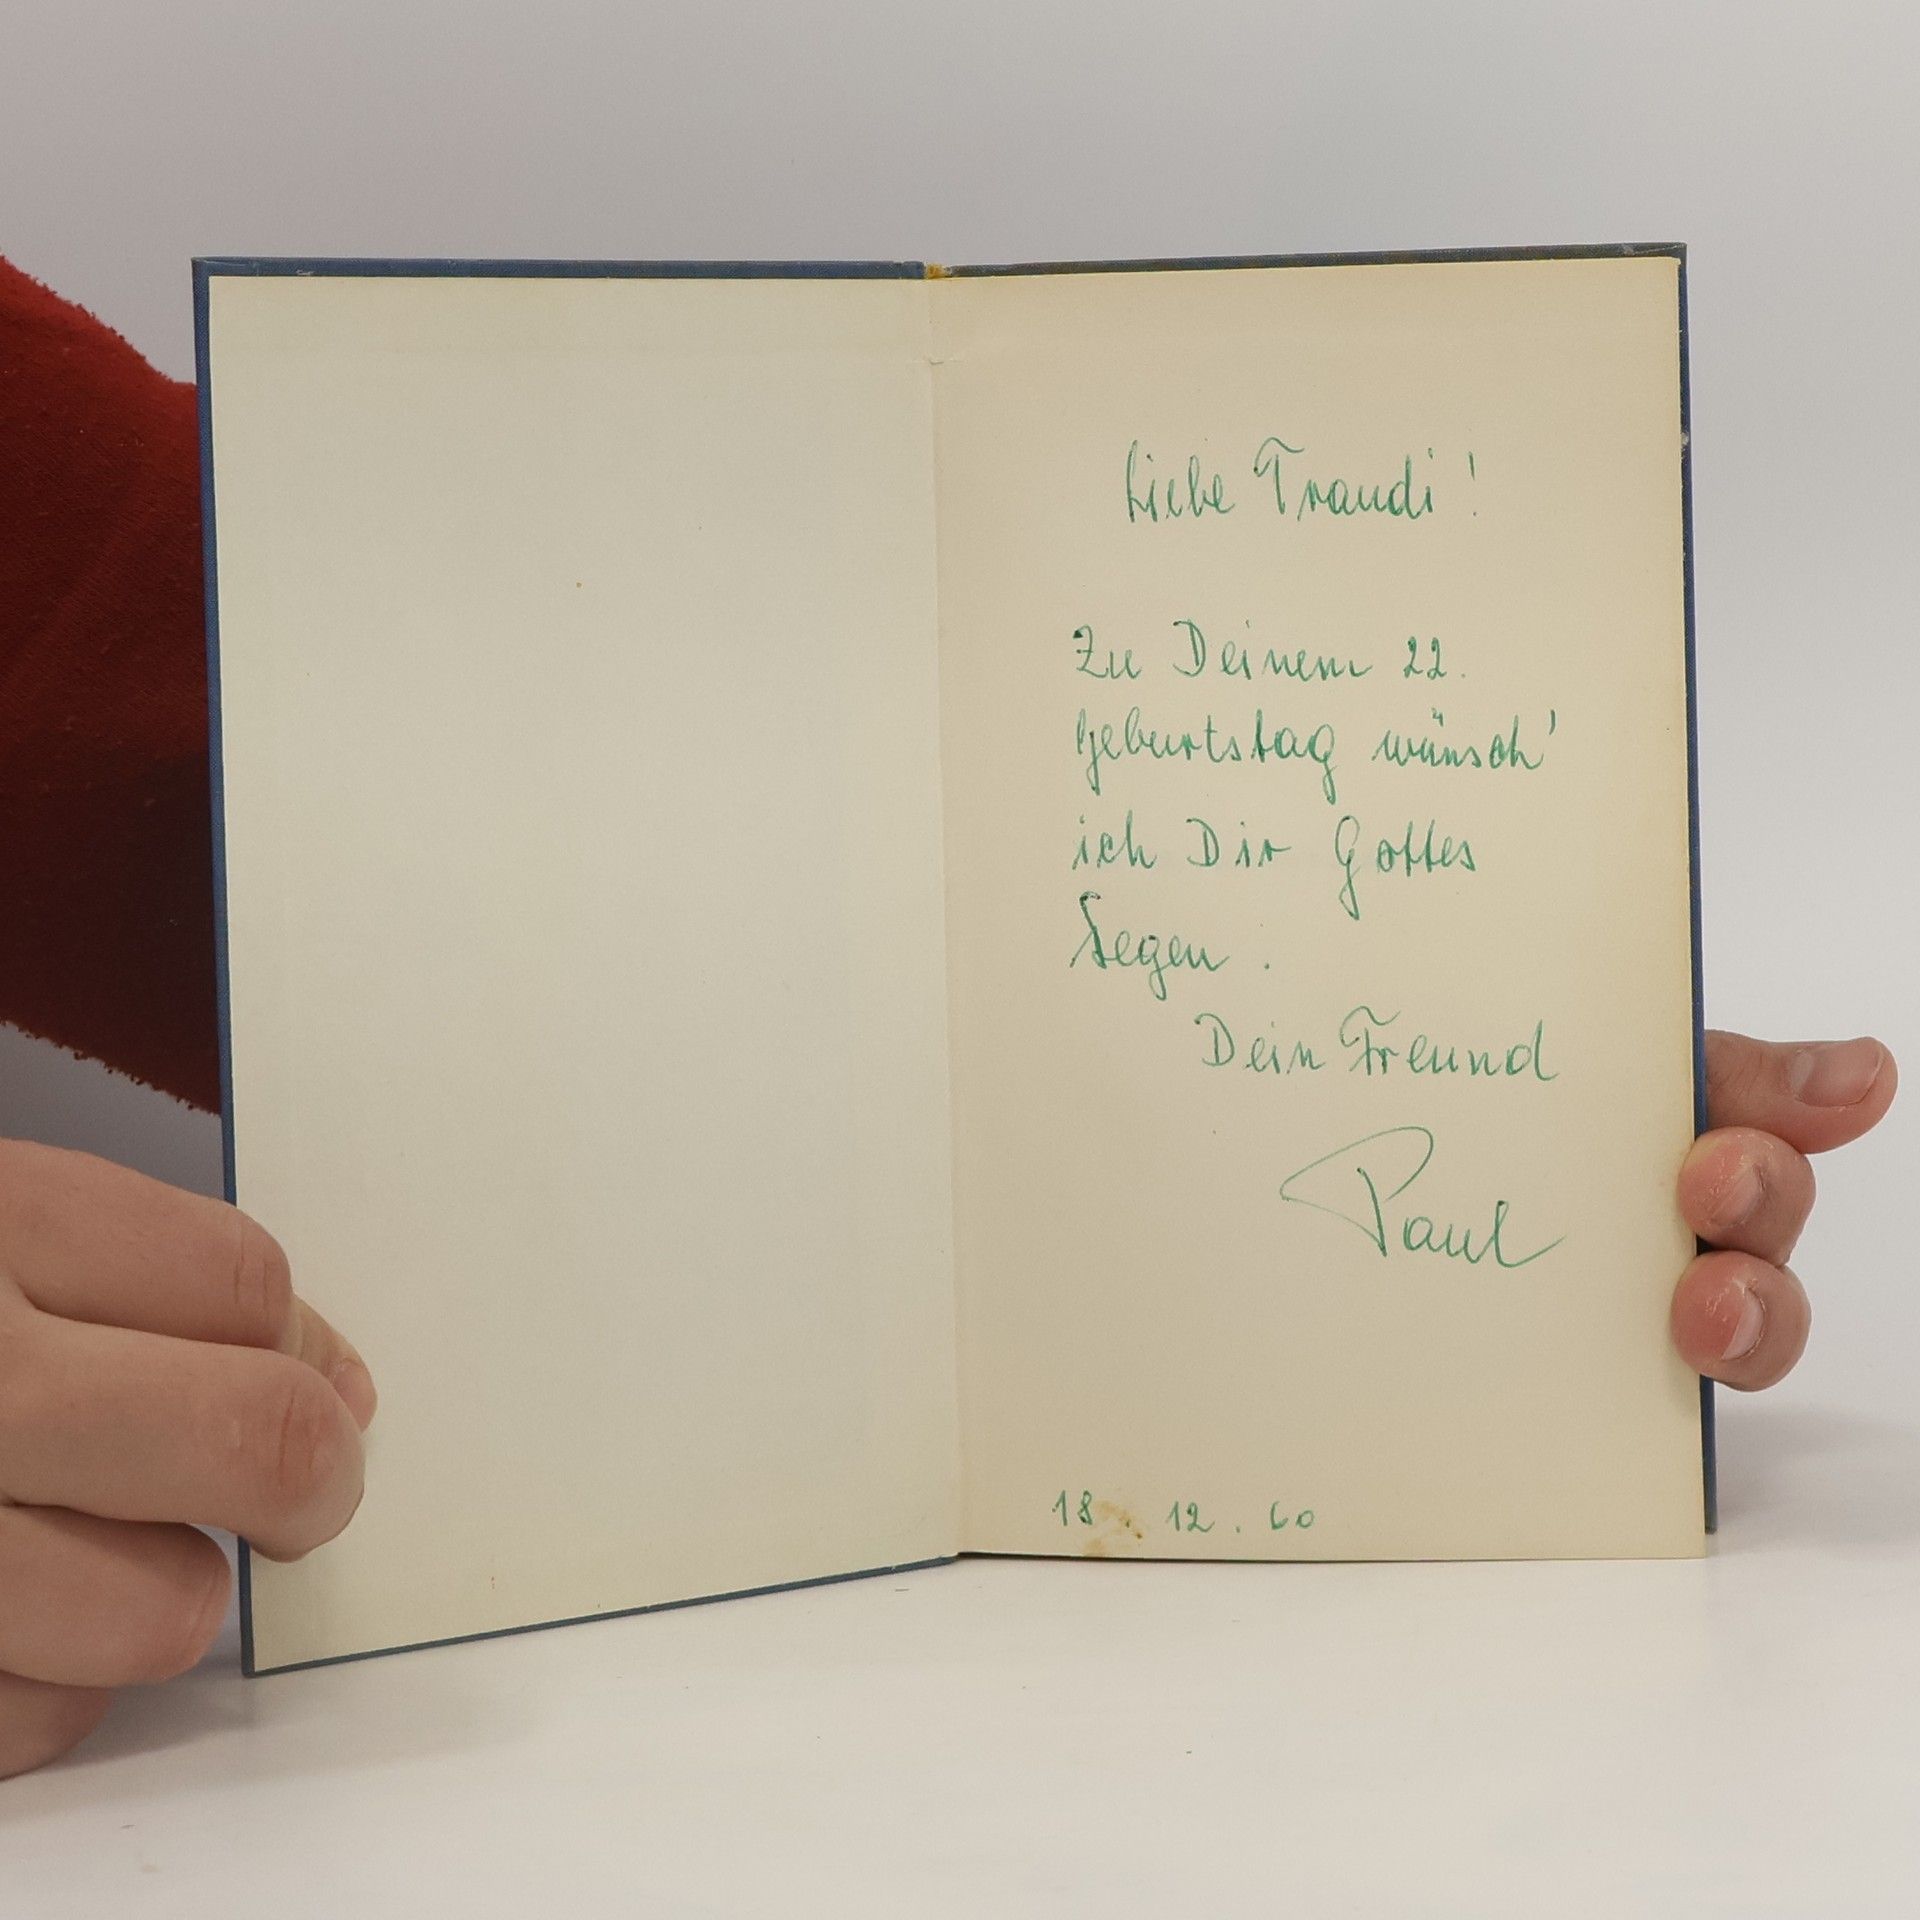 Liebe Traudi!
Zu Deinem 22.
Geburtstag wünsch'
ich Dir Gottes
Segen.
Dein Freund
Paul
18. 12. 60